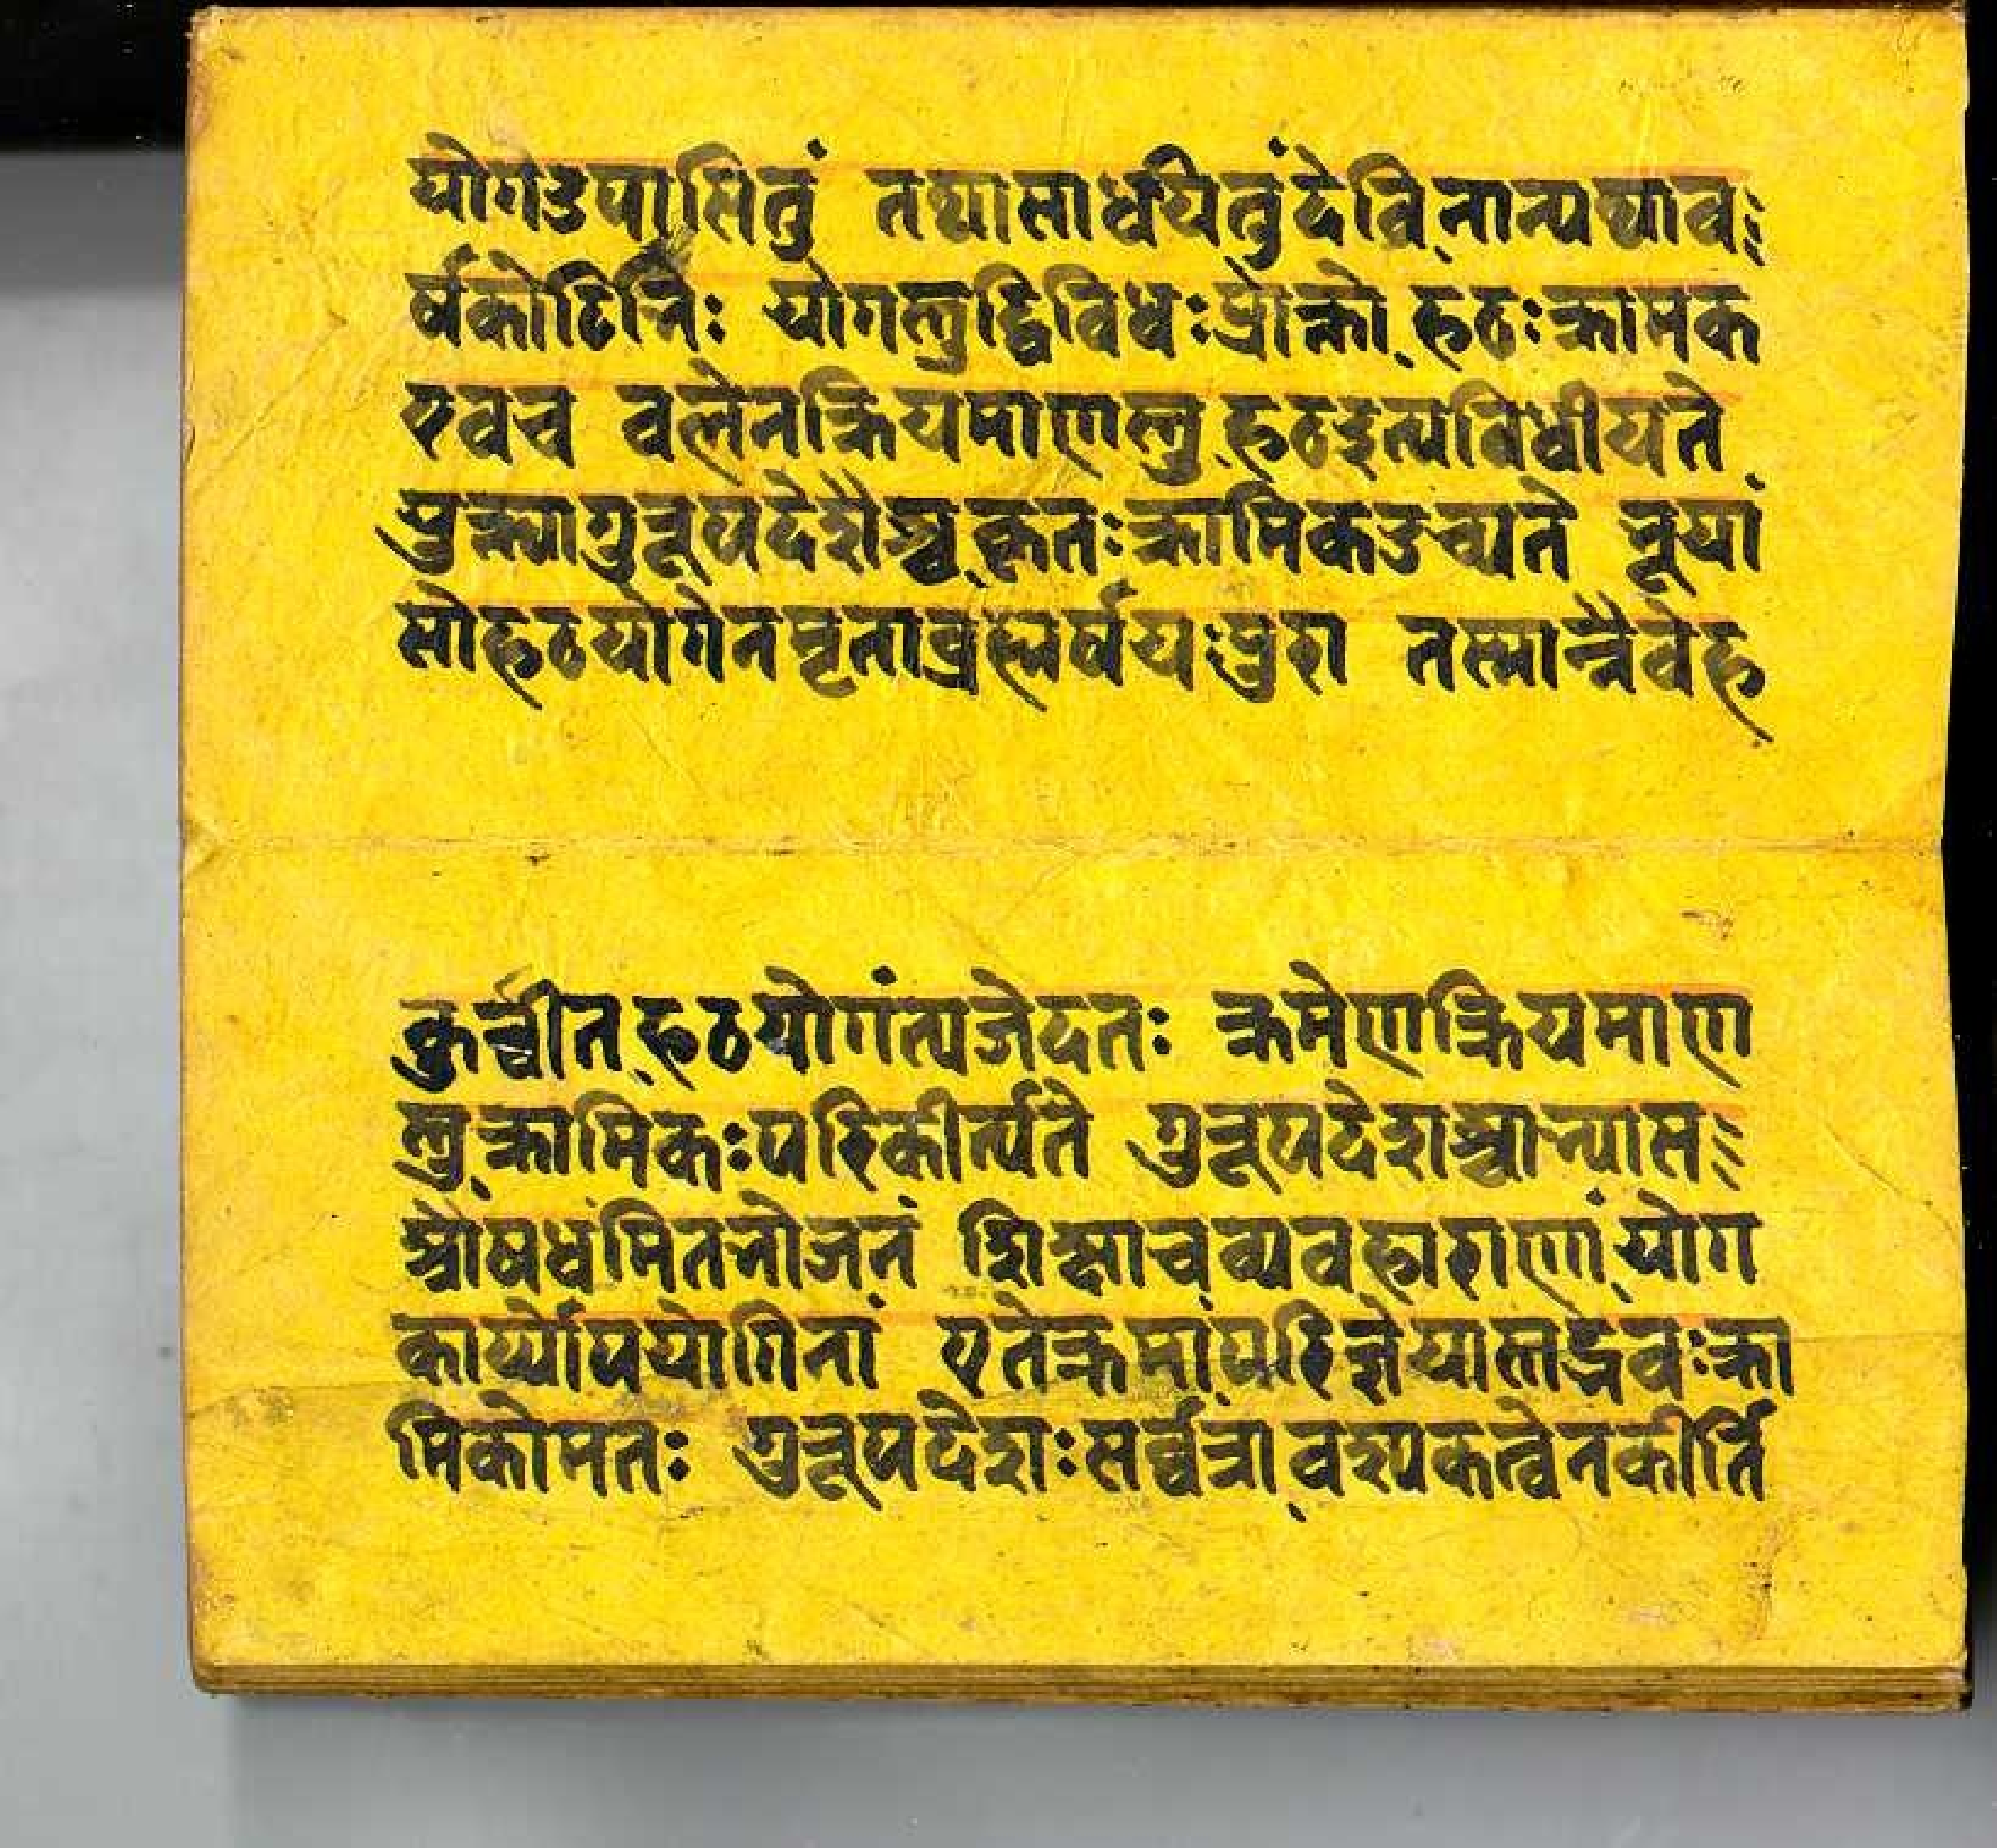 योगउपासितुं तथासाधयितुंदेविनान्यथाव
र्षकोटिभिः योगस्तुद्विविधःप्रोक्तो हठःक्रामक
एवच वलेनक्रियमाणस्तु हठइत्यभिधीयते
युक्त्यागुरूपदेशैश्च कृतःक्रामिकउच्यते भूयां
सोहठयोगेनमृताब्रह्मर्षयःपुरा तस्मान्नैवेह
कुर्व्वीत हठयोगंत्यजेदतः क्रमेणक्रियमाण
स्तु क्रामिकःपरिकीर्त्यते गुरूपदेशश्चाभ्यास
श्चौषधंमितभोजनं शिक्षाच व्यवहाराणां योग
कार्य्योपयोगिनां एतेक्रमाः परिज्ञेयास्तद्भवःक्रा
मिकोमतः गुरूपदेशःसर्व्वत्रा वश्यकत्वेनकीर्ति